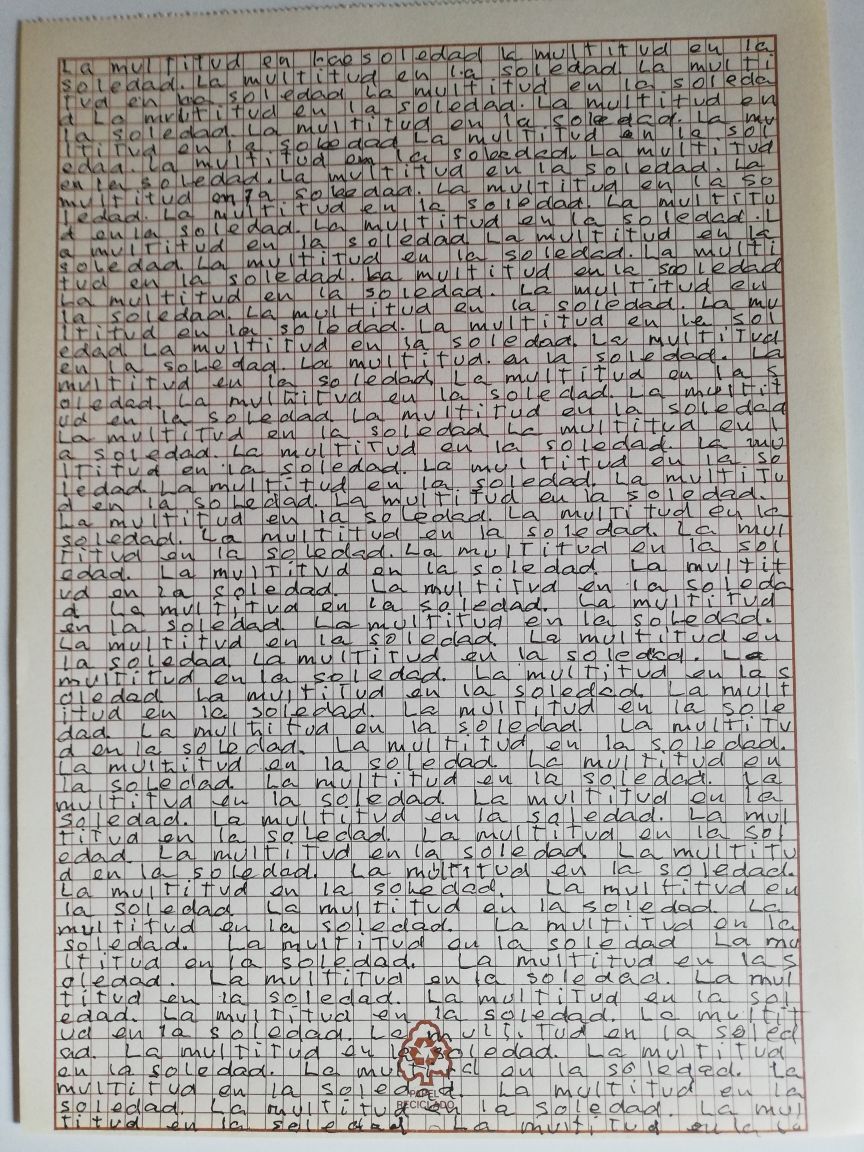 La multitud en la soledad la multitud en la
soledad. La multitud en la soledad. La multi
tud en la soledad La multitud en la soleda
d La multitud en la soledad. La multitud en
la soledad La multitud en la soledad. La mu
ltitud en la soledad La multitud en la sol
edad. La multitud en la soledad. La multitud
en la soledad. La multitud en la soledad. La
multitud en la soledad. La multitud en la so
ledad. La multitud en la soledad. La multitu
d en la soledad. La multitud en la soledad. L
a multitud en la soledad La multitud en la
soledad. La multitud en la soledad. La multi
tud en la soledad. La multitud en la soledad
La multitud en la soledad. La multitud en
la soledad. La multitud en la soledad. La mu
ltitud en la soledad. La multitud en la sol
edad La multitud en la soledad. La multitud
en la soledad. La multitud. en la soledad. La
multitud en la soledad, La multitud en la s
oledad. La multitud en la soledad. La multit
ud en la soledad La multitud en la soledad
La multitud en la soledad La multitud en l
a soledad. La multitud en la soledad. La mu
ltitud en la soledad. La multitud en la so
ledad. La multitud en la soledad. La multitu
d en la soledad. La multitud en la soledad.
La multitud en la soledad. La multitud en la
soledad. La multitud en la soledad. La mul
titud en la soledad. La multitud en la sol
edad. La multitud en la soledad. La multit
ud en la soledad. La multitud en la soleda
d La multitud en la soledad. La multitud
en la soledad. La multitud en la soledad.
La multitud en la soledad. La multitud en
la soledad La multitud en la soledad. La
multitud en la soledad. La multitud en la s
oledad La multitud en la soledad. La mult
itud en la soledad. La multitud en la sole
dad. La multitud en la soledad. La multitu
d en la soledad. La multitud en la soledad.
La multitud en la soledad. La multitud en
la soledad. La multitud en la soledad. La
multitud en la soledad. La multitud en la
soledad. La multitud en la soledad. La mul
titud en la soledad. La multitud en la sol
edad. La multitud en la soledad. La multitu
d en la soledad. La multitud en la soledad.
La multitud en la soledad. La multitud en
la soledad La multitud en la soledad. La
multitud en la soledad. La multitud en la
soledad. La multitud en la soledad La mu
ltitud en la soledad. La multitud en la s
oledad. La multitud en la soledad. La mul
titud en la soledad. La multitud en la sol
edad. La multitud en la soledad. La multit
ud en la soledad. La multitud en la soled
ad. La multitud en la soledad. La multitud
en la soledad. La multitud en la soledad. La
multitud en la soledad. La multitud en la
PAPEL
RECICLADO
soledad. La multitud en la soledad. La mul
titud en la soledad La multitud en la so